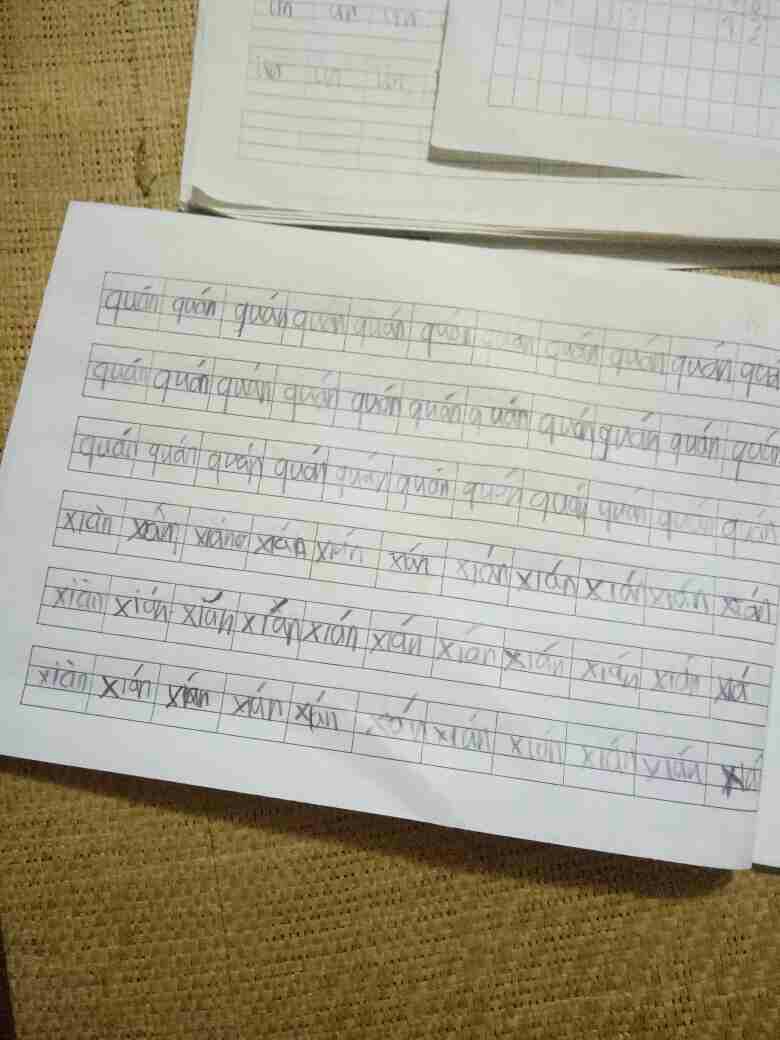 in un un
in un un
1 2
quán quán quán quán quán quán quán quán quán quán qua
quán quán quán quán quán quán quán quán quán quán quán
quán quán quán quán quán quán quán quán quán quán quán
xiàn xián xián xián xán xián xián xián xián xián
xiàn xián xiǎn xiǎn xián xián xián xián xián xián xiá
xiàn xián xián xián xián xián xián xián xián xiá